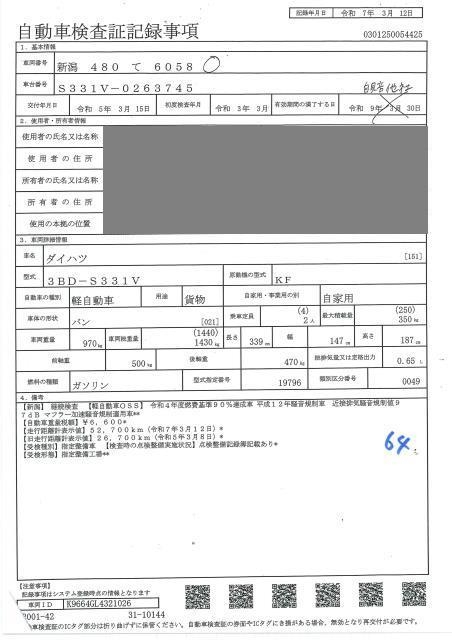 記録年月日 令和 7年 3月 12日
自動車検査証記録事項
0301250054425
1. 基本情報
車両番号 新潟 480 て 6058
車台番号 S331V-0263745
自賠他社
交付年月日 令和 5年 3月 15日 初度検査年月 令和 3年 3月 有効期間の満了する日 令和 9年 3月 30日
2. 使用者・所有者情報
使用者の氏名又は名称
使用者の住所
所有者の氏名又は名称
所有者の住所
使用の本拠の位置
3. 車両詳細情報
車名 ダイハツ [151]
型式 3BD-S331V 原動機の型式 KF
自動車の種別 軽自動車 用途 貨物 自家用・事業用の別 自家用
車体の形状 バン [021] 乗車定員 (4) 2人 最大積載量 (250) 350kg
車両重量 970kg 車両総重量 (1440) 1430kg 長さ 339cm 幅 147cm 高さ 187cm
前軸重 500kg 後軸重 470kg 総排気量又は定格出力 0.65L
燃料の種類 ガソリン 型式指定番号 19796 類別区分番号 0049
4. 備考
【新潟】 継続検査 【軽自動車OSS】 令和4年度燃費基準90%達成車 平成12年騒音規制車 近接排気騒音規制値9
7dB マフラー加速騒音規制適用車**
【自動車重量税額】 ¥6,600*
【走行距離計表示値】52,700km(令和7年3月12日)*
【旧走行距離計表示値】26,700km(令和5年3月8日)*
【受検種別】指定整備車 【検査時の点検整備実施状況】点検整備記録簿記載あり*
【受検形態】指定整備工場**
64
【注意事項】
記録事項はシステム登録時点の情報となります
車両ID K9664GL4321026
2001-42 31-10144
車検査証のICタグ部分は折り曲げずに保管ください。自動車検査証の券面やICタグにき損がある場合、無効となり再交付が必要です。